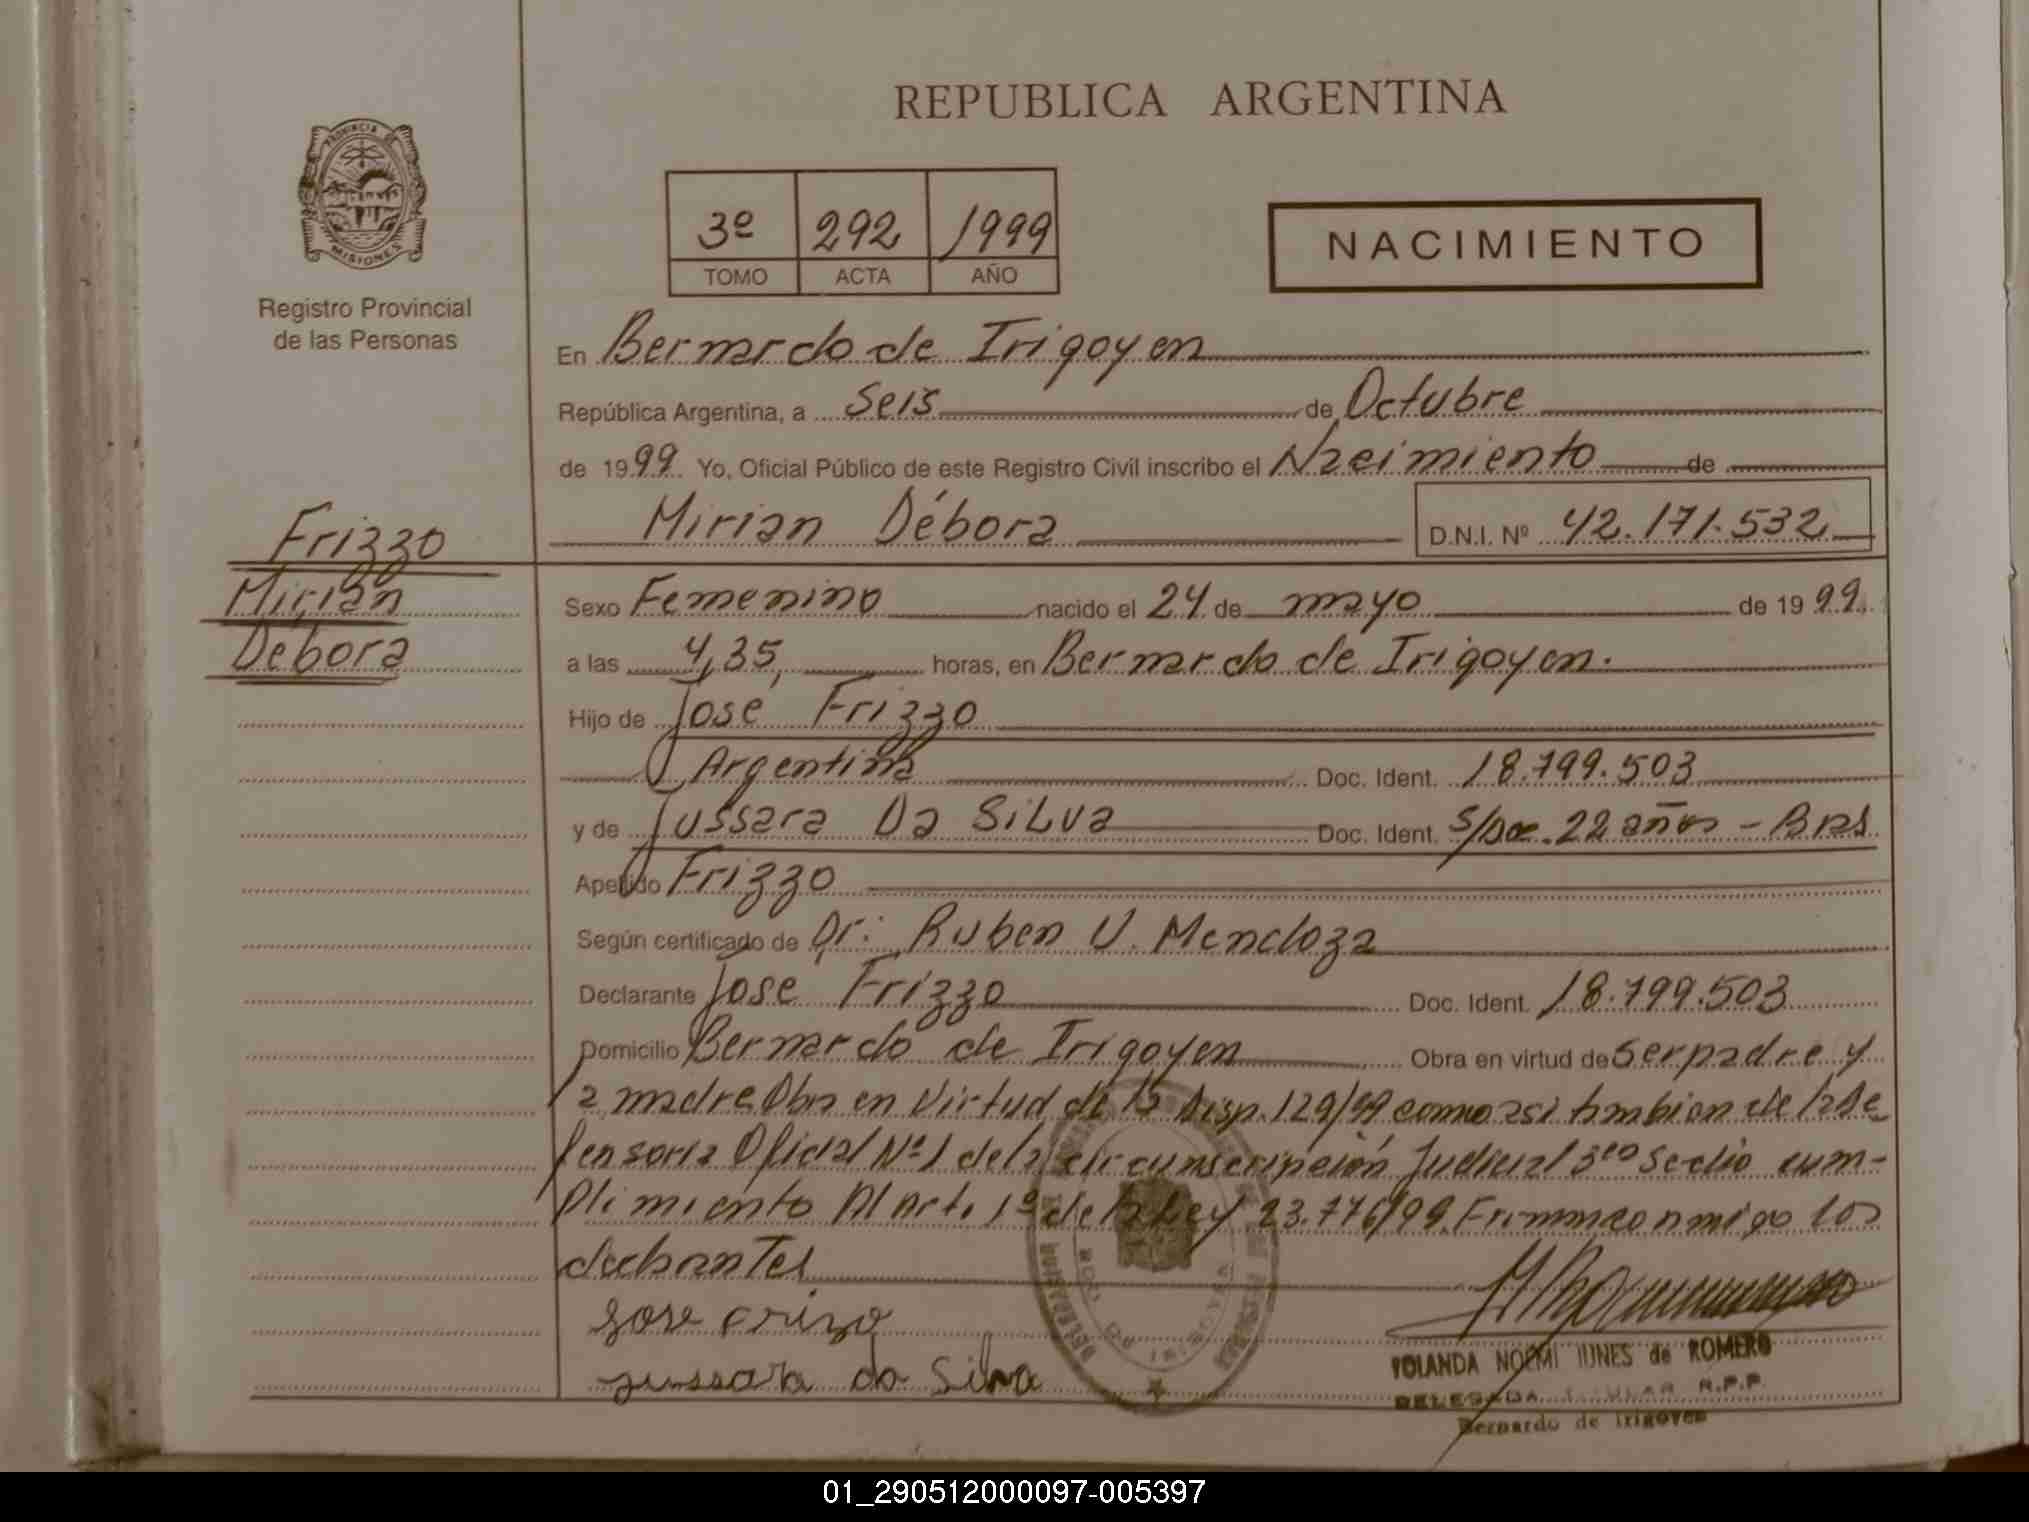 REPUBLICA ARGENTINA
PROVINCIA DE
MISIONES
Registro Provincial
de las Personas
3º 292 1999
TOMO ACTA AÑO
NACIMIENTO
En Bernardo de Irigoyen
República Argentina, a Seis de Octubre
de 1999 Yo, Oficial Público de este Registro Civil inscribo el Nacimiento de
Mirian Débora D.N.I. Nº 42.171.532
Frizzo
Mirian
Débora
Sexo Femenino nacido el 24 de mayo de 1999
a las 4,35, horas, en Bernardo de Irigoyen.
Hijo de José Frizzo
Argentina Doc. Ident. 18.799.503
y de Jussara Da Silva Doc. Ident. s/Doc. 22 años - Bras
Apellido Frizzo
Según certificado de Dr: Ruben V. Mendoza
Declarante José Frizzo Doc. Ident. 18.799.503
Domicilio Bernardo de Irigoyen Obra en virtud de ser padre y
la madre Obra en Virtud de la Disp. 129/99 como asi tambien de la De
fensoria Oficial Nº 1 de la circunscripción Judicial 3era cum-
plimiento Al Art. 1º de la Ley 23.776/99. Firman conmigo los
José Frizo
Jussara da Silva
YOLANDA NOEMI IUNES de ROMERO
DELEGADA TITULAR R.P.P.
Bernardo de Irigoyen
01_290512000097-005397